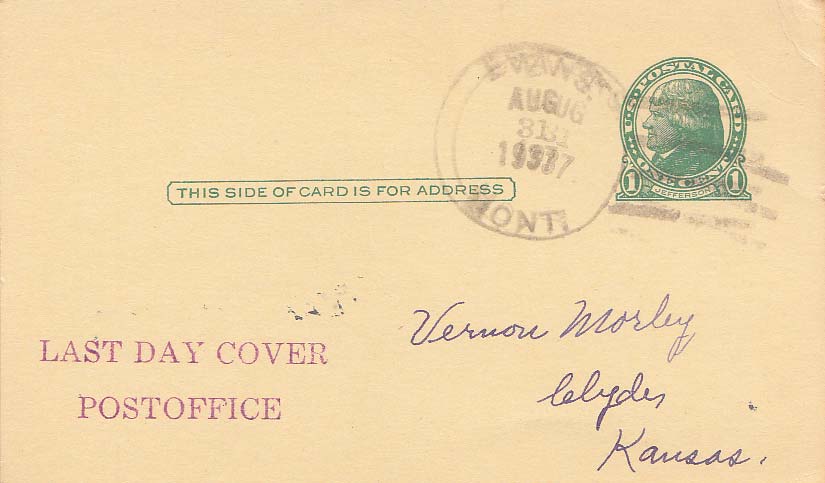 U.S. POSTAL CARD
ONE CENT
1 JEFFERSON 1
EVANS
AUG
31
1937
MONT
THIS SIDE OF CARD IS FOR ADDRESS
LAST DAY COVER
POSTOFFICE
Vernon Morley
Clyde,
Kansas.